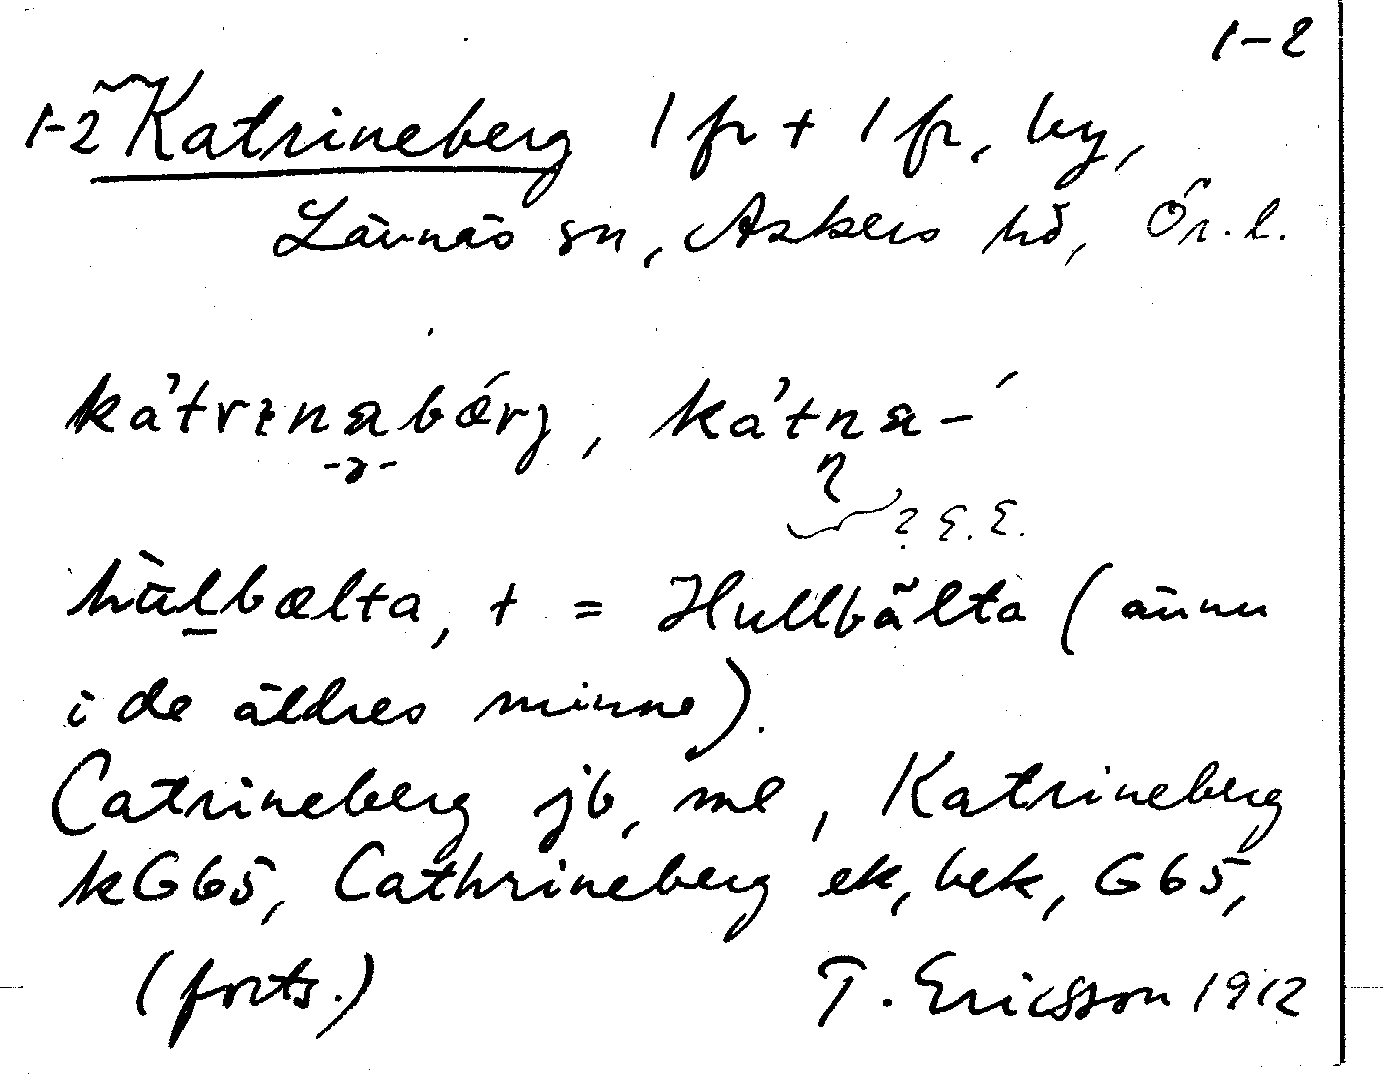 1-2
1-2 Katrineberg 1 fr + 1 fr, by,
Lännäs sn, Askers hd, Ör. l.
ká'trɩnabǽrj, ká'tna-́
-ə- ŋ
? E. E.
hùlbælta, + = Hullbälta (ännu
i de äldres minne).
Catrineberg jb, ml, Katrineberg
kG65, Cathrineberg ek, bek, G65,
(forts.) T. Ericsson 1912